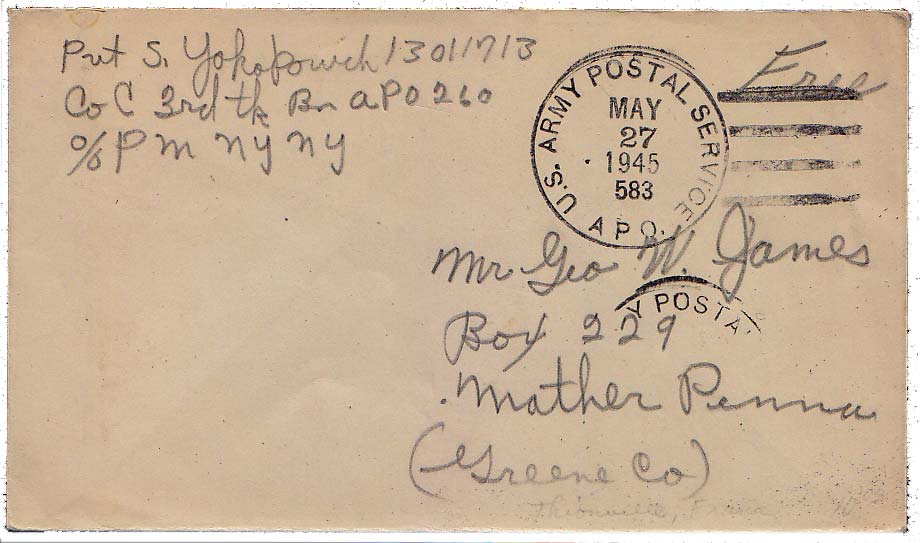 Pvt S. Yokopovich 13011713
Co C 3rd tk Bn APO 260
c/o P M NY NY
Free
U.S. ARMY POSTAL SERVICE
MAY
27
1945
583
A P O.
Mr Geo W. James
Y POSTA
Box 229
Mather Penna
(Greene Co)
Thionville, France